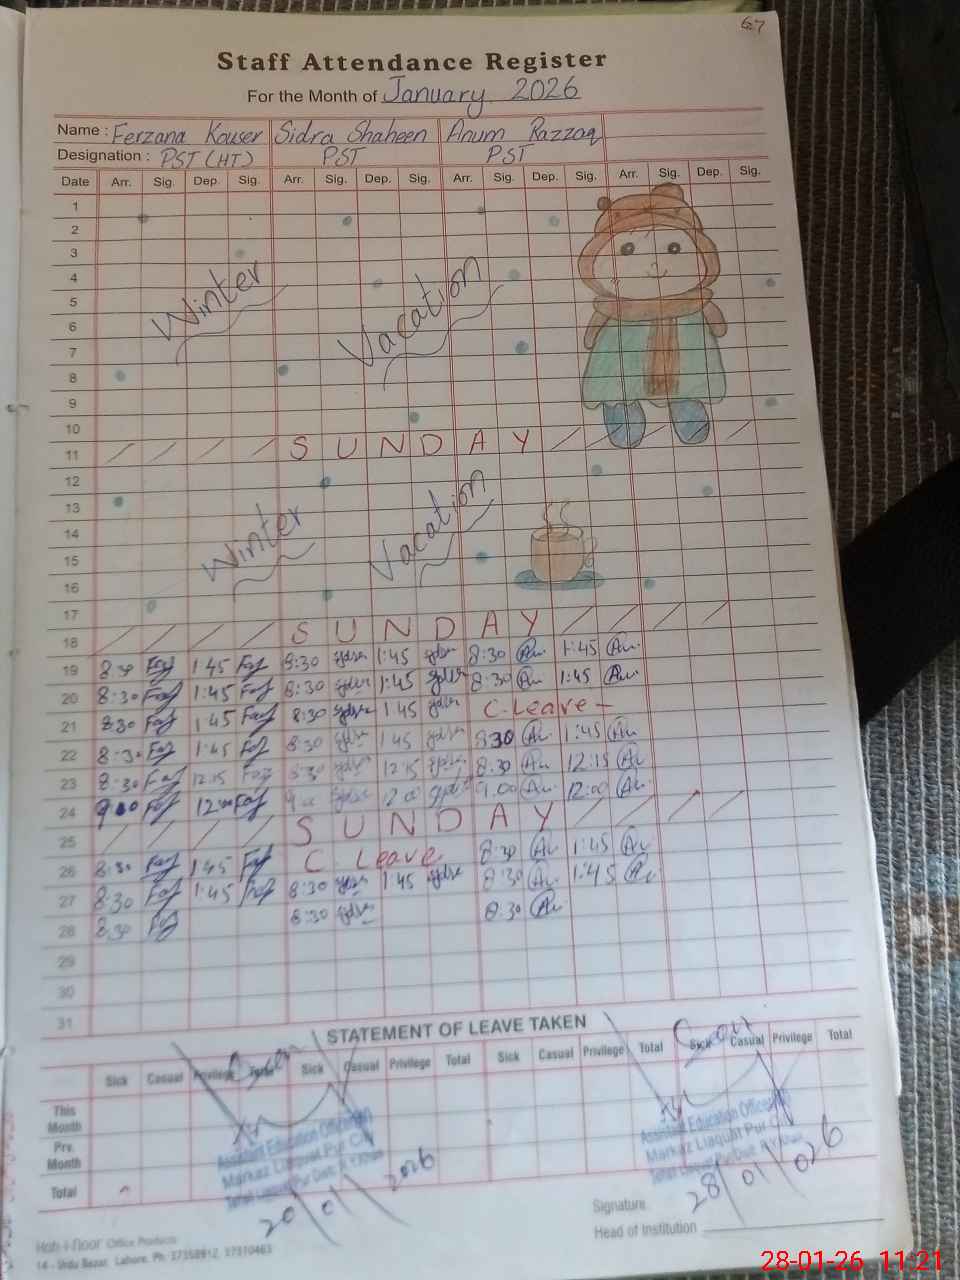 67
Staff Attendance Register
For the Month of January 2026
Name : Ferzana Kouser Sidra Shaheen Anum Razzaq
Designation : PST (HT) PST PST
Date Arr. Sig. Dep. Sig. Arr. Sig. Dep. Sig. Arr. Sig. Dep. Sig. Arr. Sig. Dep. Sig.
1
2
3
4
5
Winter Vacation
6
7
8
9
10
11 S U N D A Y
12
13
14
Winter Vacation
15
16
17
18 S U N D A Y
19 8:30 1:45 8:30 1:45 8:30 1:45
20 8:30 1:45 8:30 1:45 8:30 1:45
21 8:30 1:45 8:30 1:45 C. Leave
22 8:30 1:45 8:30 1:45 8:30 1:45
23 8:30 12:15 8:30 12:15 8:30 12:15
24 9:00 12:00 9:00 12:00 9:00 12:00
25 S U N D A Y
26 8:30 1:45 C. Leave 8:30 1:45
27 8:30 1:45 8:30 1:45 8:30 1:45
28 8:30 8:30 8:30
29
30
31
STATEMENT OF LEAVE TAKEN
Sick Casual Privilege Total Sick Casual Privilege Total Sick Casual Privilege Total Sick Casual Privilege Total
This Month
Pre. Month
Total
Assistant Education Officer
Markaz Liaquat Pur
Tehsil Liaquat Pur Distt: R.Y.Khan
20/01/2026
Assistant Education Officer
Markaz Liaquat Pur
Tehsil Liaquat Pur Distt: R.Y.Khan
28/01/026
Signature
Head of Institution
Office Products
14 - Urdu Bazar, Lahore. Ph: 37358912, 37310463
28-01-26 11:21